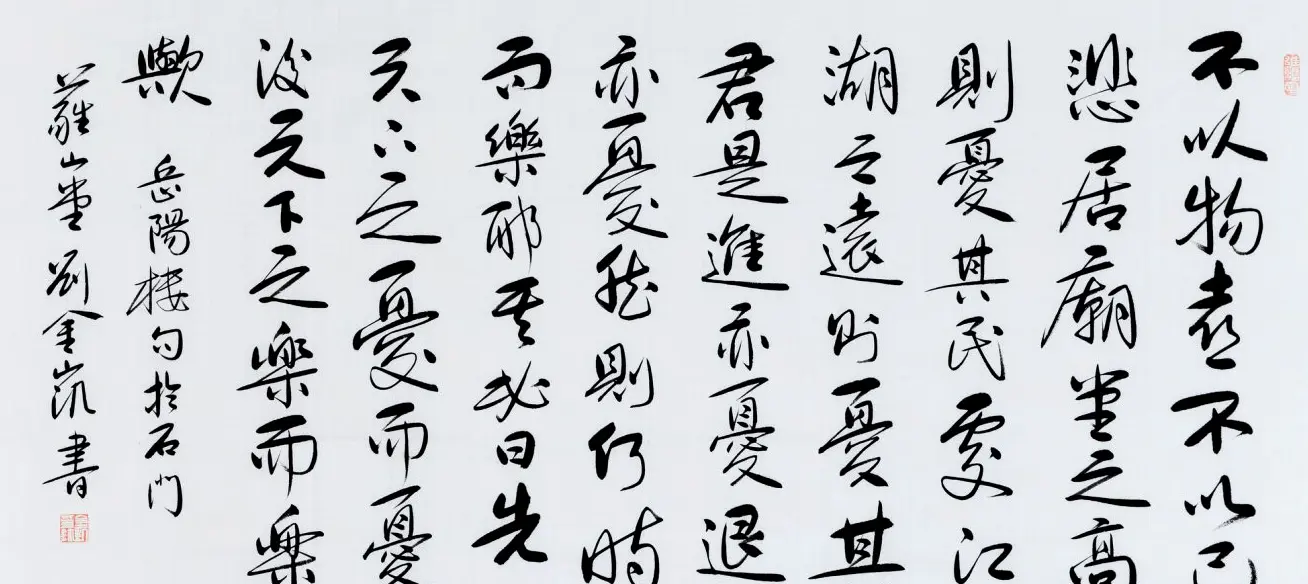 不以物喜不以己
悲居廟堂之高
則憂其民處江
湖之遠則憂其
君是進亦憂退
亦憂然則何時
而樂耶其必曰先
天下之憂而憂
後天下之樂而樂
歟 岳陽楼句於石門
蘿山堂劉金凱書